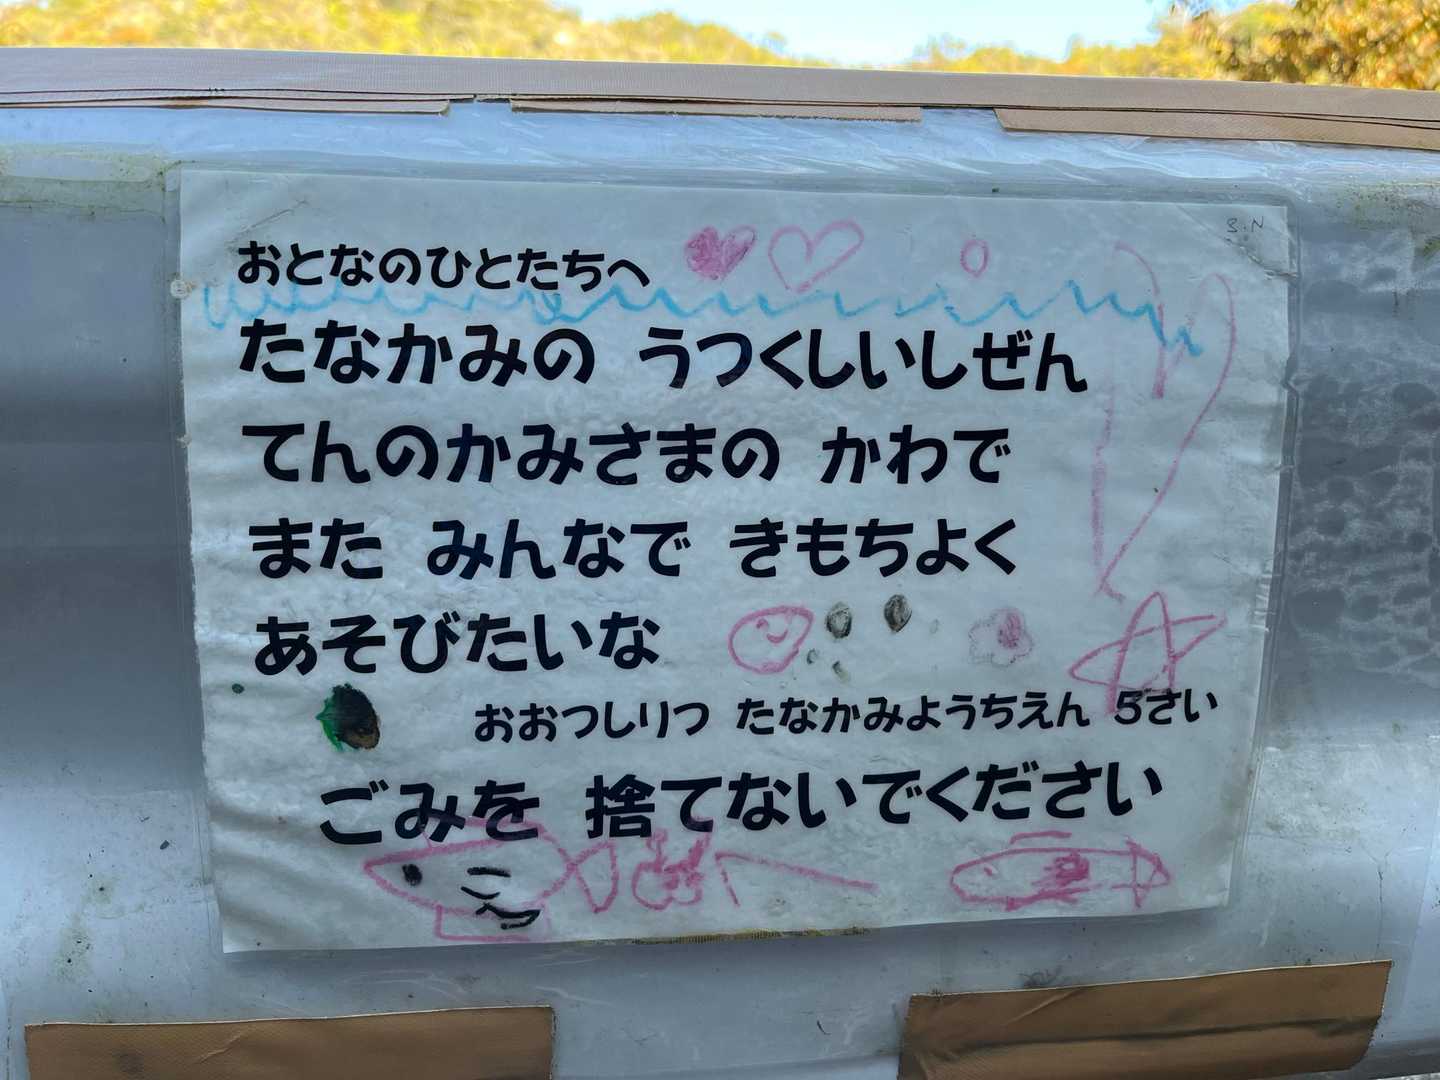 S.N
おとなのひとたちへ
たなかみの うつくしいしぜん
てんのかみさまの かわで
また みんなで きもちよく
あそびたいな
おおつしりつ たなかみようちえん 5さい
ごみを 捨てないでください